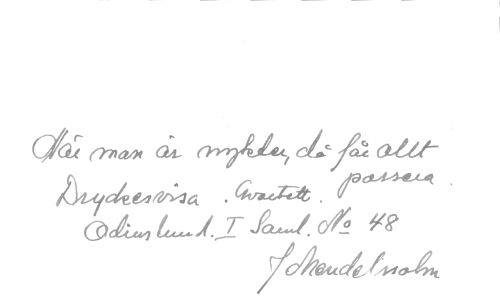 När man är nykter, då får allt
passera.
Dryckesvisa. Qvartett.
Odinslund. I Saml. No 48
J Mendelssohn